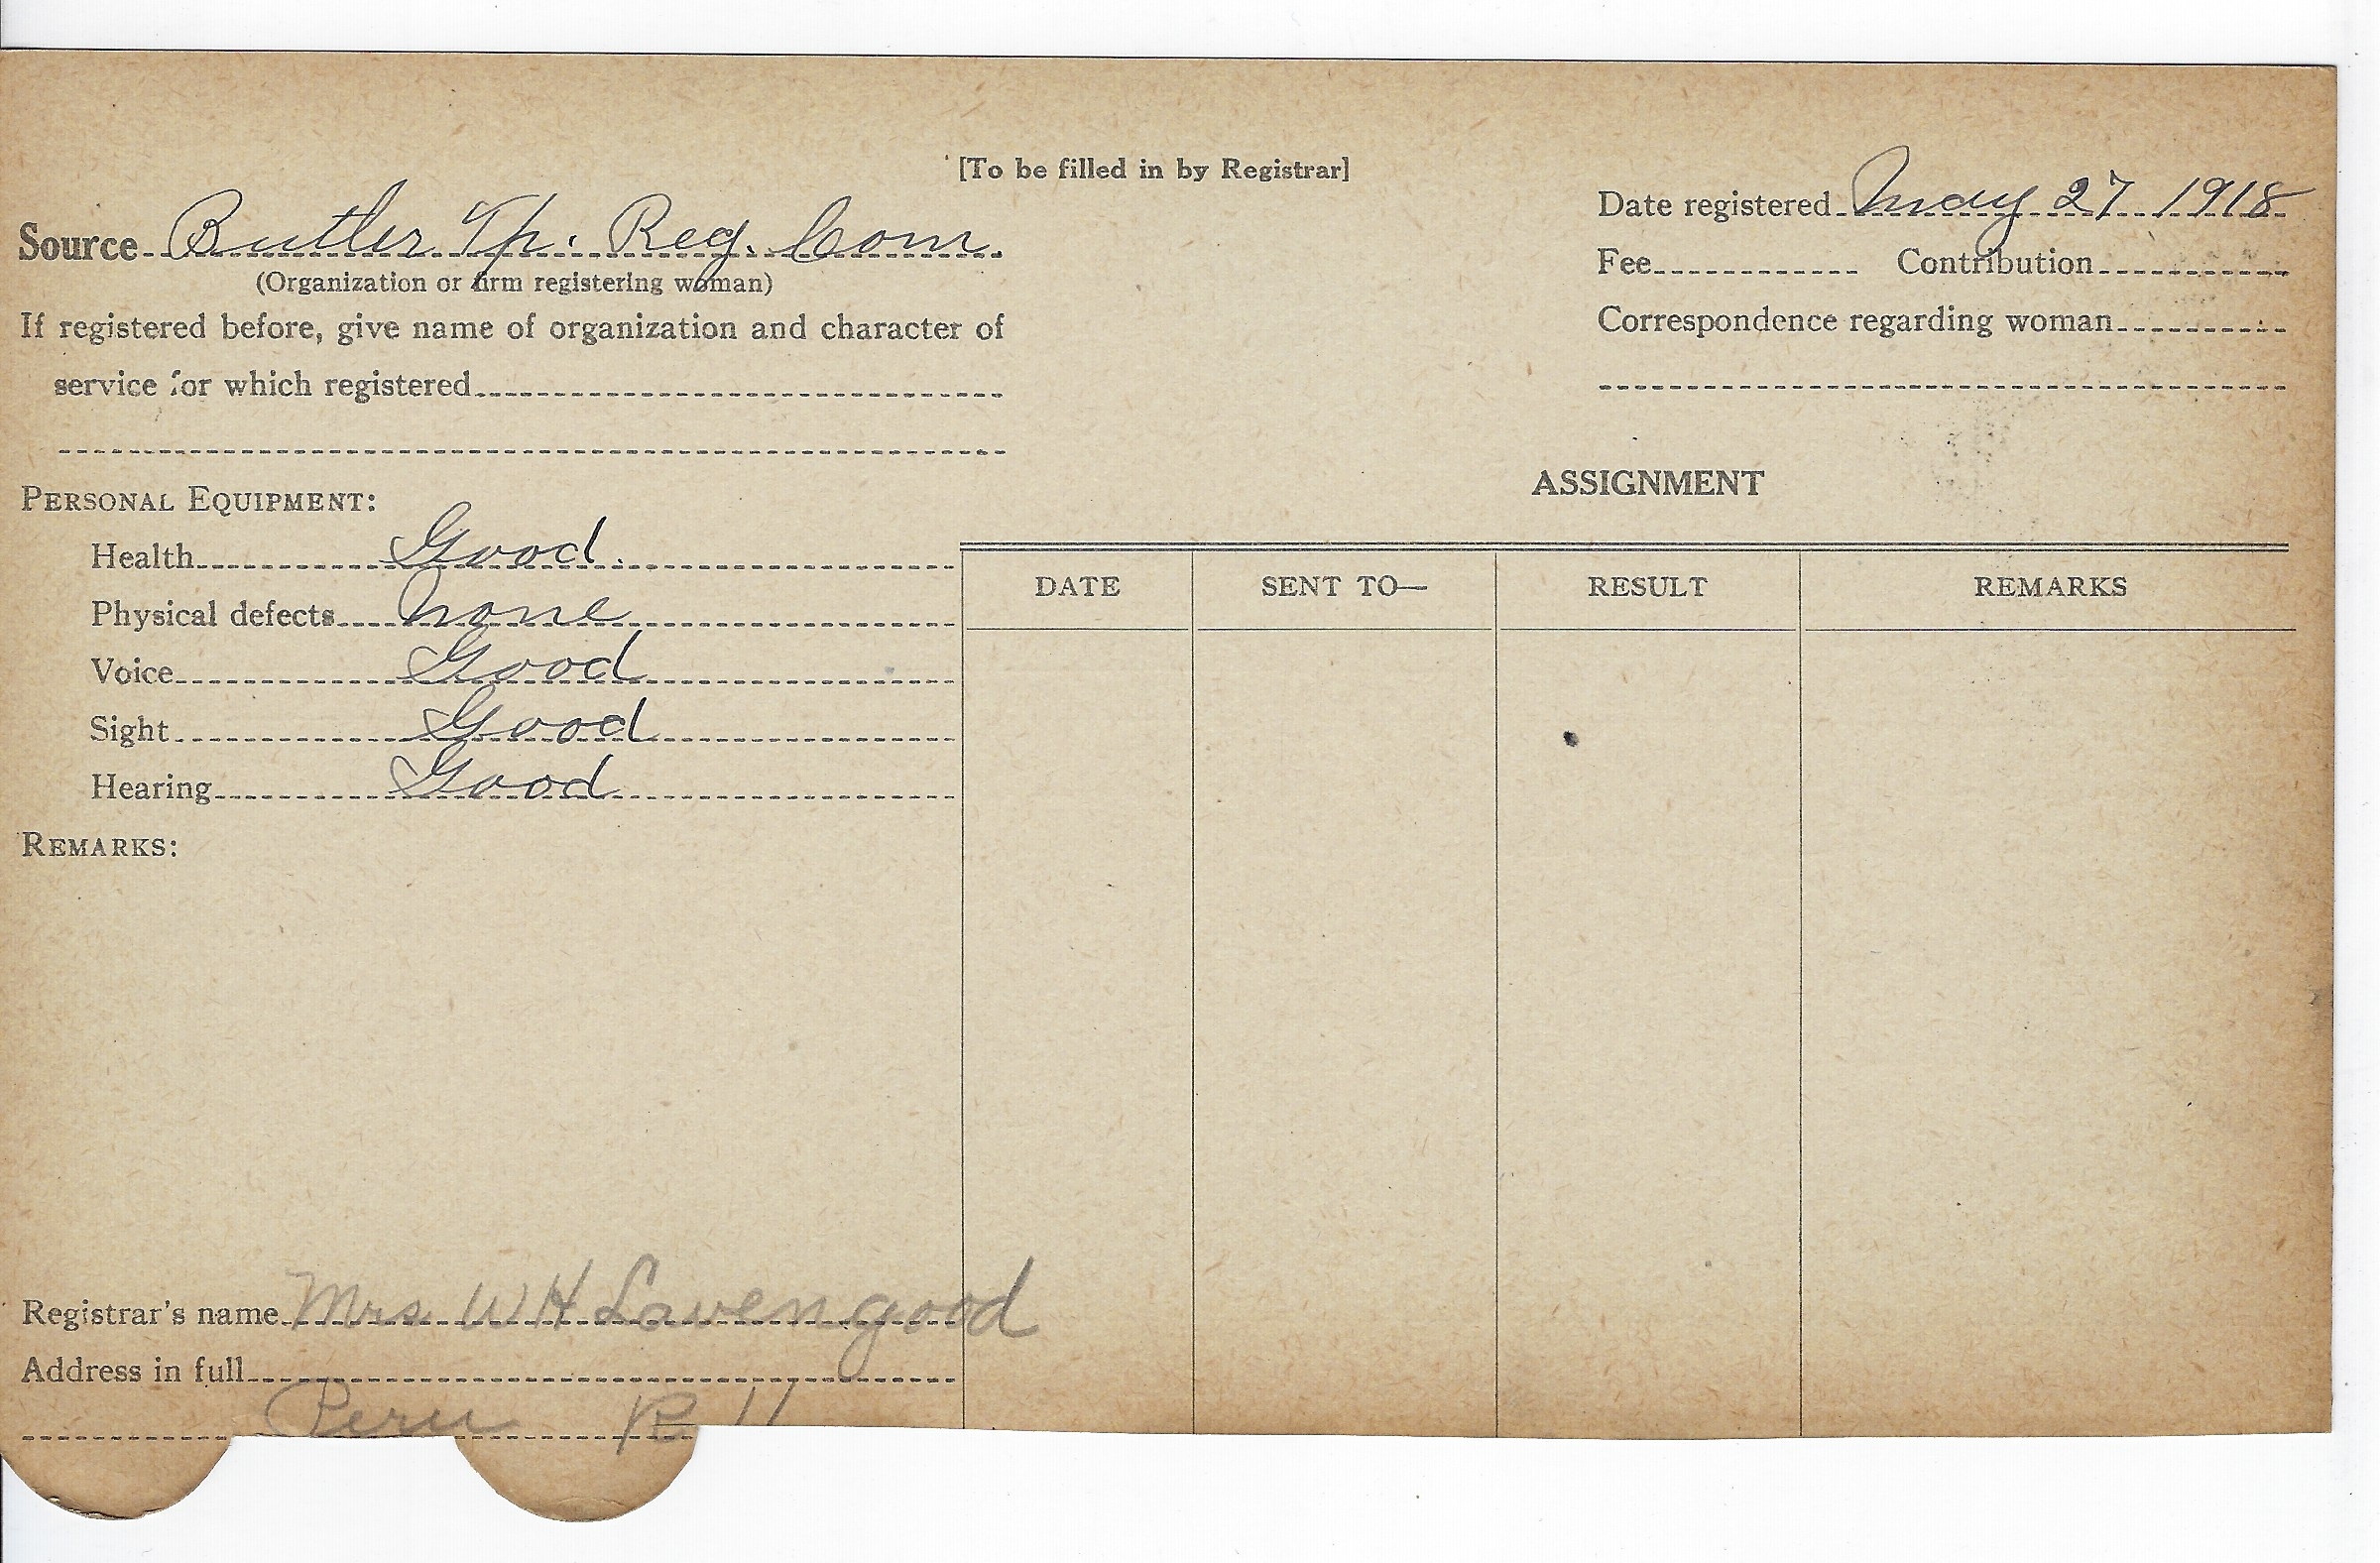 [To be filled in by Registrar]
Source Butler Tp. Reg. Com.
(Organization or firm registering woman)
If registered before, give name of organization and character of
service for which registered
Date registered May 27 1918
Fee Contribution
Correspondence regarding woman
PERSONAL EQUIPMENT:
Health Good
Physical defects none
Voice Good
Sight Good
Hearing Good
REMARKS:
ASSIGNMENT
DATE SENT TO— RESULT REMARKS
Registrar's name Mrs W H Lavengood
Address in full
Peru R 11